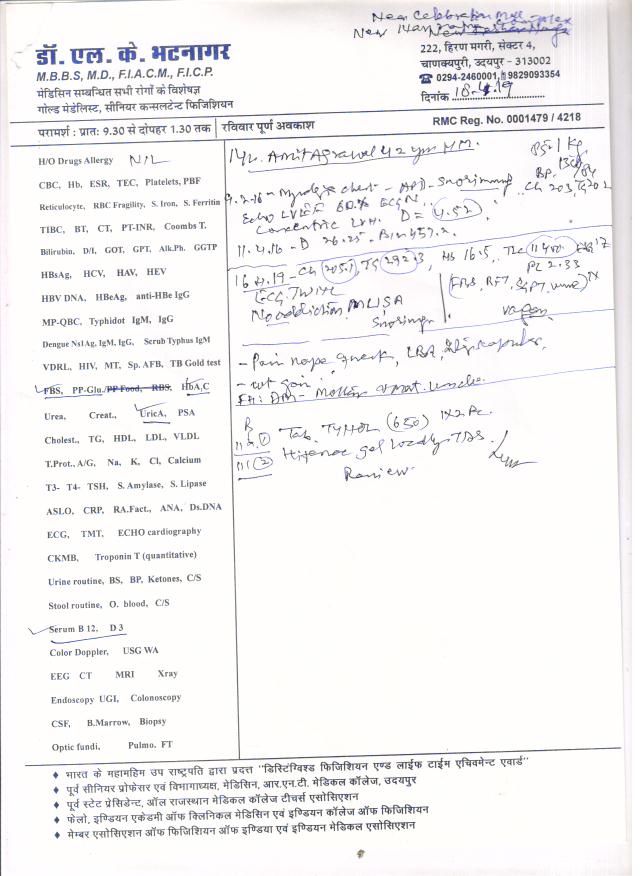 New Celebration Mall
डॉ. एल. के. भटनागर
M.B.B.S, M.D., F.I.A.C.M., F.I.C.P.
मेडिसिन सम्बन्धित सभी रोगों के विशेषज्ञ
गोल्ड मेडेलिस्ट, सीनियर कन्सलटेन्ट फिजिशियन
222, हिरण मगरी, सेक्टर 4,
चाणक्यपुरी, उदयपुर - 313002
0294-2460001, 9829093354
दिनांक 18.4.19
परामर्श : प्रात: 9.30 से दोपहर 1.30 तक रविवार पूर्ण अवकाश
RMC Reg. No. 0001479 / 4218
H/O Drugs Allergy NIL
CBC, Hb, ESR, TEC, Platelets, PBF
Reticulocyte, RBC Fragility, S. Iron, S. Ferritin
TIBC, BT, CT, PT-INR, Coombs T.
Bilirubin, D/I, GOT, GPT, Alk.Ph. GGTP
HBsAg, HCV, HAV, HEV
HBV DNA, HBeAg, anti-HBe IgG
MP-QBC, Typhidot IgM, IgG
Dengue Ns1Ag, IgM, IgG, Scrub Typhus IgM
VDRL, HIV, MT, Sp. AFB, TB Gold test
FBS, PP-Glu./PP Food, RBS, HbA,C
Urea, Creat., UricA, PSA
Cholest., TG, HDL, LDL, VLDL
T.Prot., A/G, Na, K, Cl, Calcium
T3- T4- TSH, S. Amylase, S. Lipase
ASLO, CRP, RA.Fact., ANA, Ds.DNA
ECG, TMT, ECHO cardiography
CKMB, Troponin T (quantitative)
Urine routine, BS, BP, Ketones, C/S
Stool routine, O. blood, C/S
Serum B 12, D 3
Color Doppler, USG WA
EEG CT MRI Xray
Endoscopy UGI, Colonoscopy
CSF, B.Marrow, Biopsy
Optic fundi, Pulmo. FT
Amit Agrawal 42 yrs
85.1 Kg
BP.
Echo LVEF 60% ECG N
Concentric LVH. D= 4.52
11.4.16 - D 26.25
Hb 16.5, TLC
PL 2.33
No addiction
Snoring
- wt gain
Tab. TYMOL (650) 1x2 Pc
Hifenac gel locally TDS
Review
भारत के महामहिम उप राष्ट्रपति द्वारा प्रदत्त "डिस्टिंग्विश्ड फिजिशियन एण्ड लाईफ टाईम एचिवमेन्ट एवार्ड"
पूर्व सीनियर प्रोफेसर एवं विभागाध्यक्ष, मेडिसिन, आर.एन.टी. मेडिकल कॉलेज, उदयपुर
पूर्व स्टेट प्रेसिडेन्ट, ऑल राजस्थान मेडिकल कॉलेज टीचर्स एसोसिएशन
फेलो, इण्डियन एकेडमी ऑफ क्लिनिकल मेडिसिन एवं इण्डियन कॉलेज ऑफ फिजिशियन
मेम्बर एसोसिएशन ऑफ फिजिशियन ऑफ इण्डिया एवं इण्डियन मेडिकल एसोसिएशन